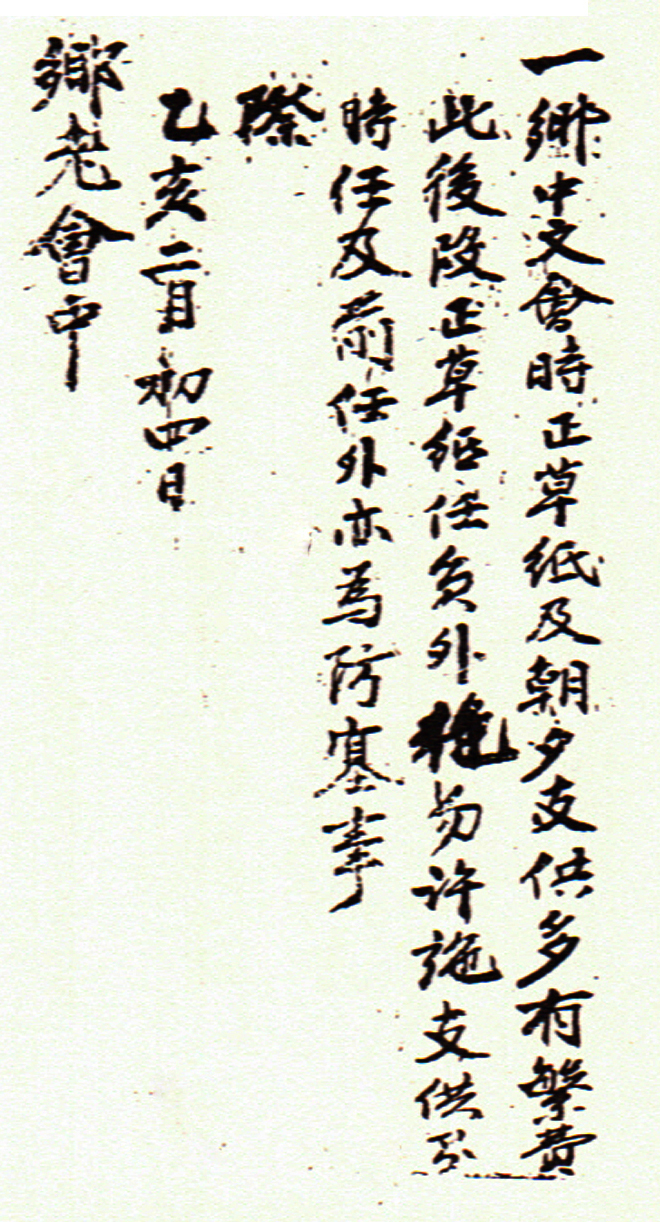 一鄕中文會時正草紙及朝夕支供多有繁費
此後段正草紙任員外雜勿許施支供
時任及前任外亦爲防塞事
際
乙亥二月初四日
鄕老會中